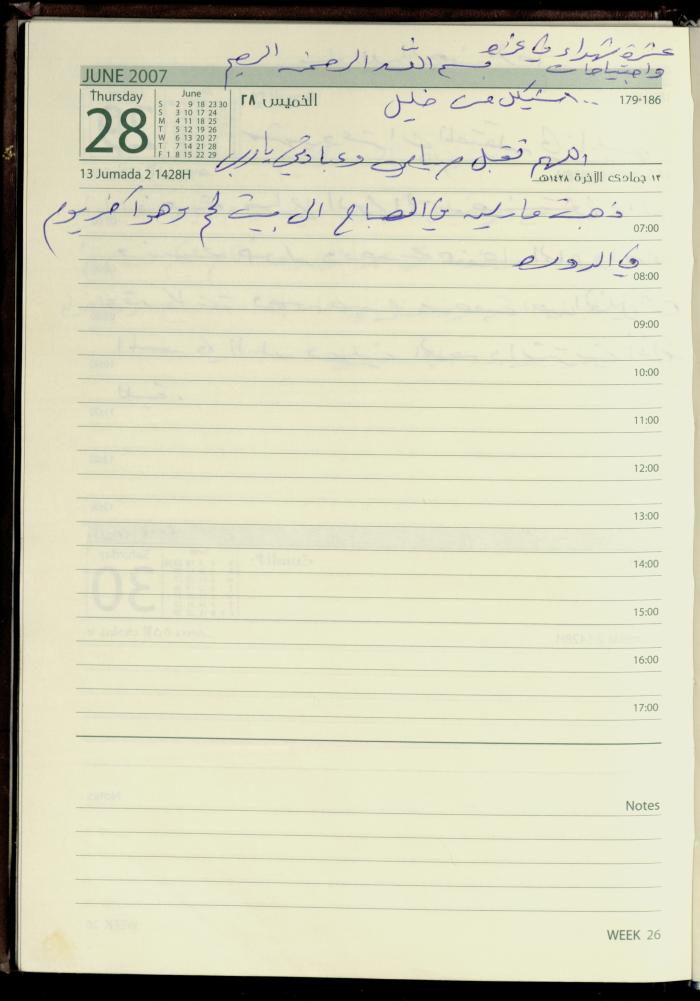 عشرة شهداء في غزة
واجتياحات
بسم الله الرحمن الرحيم
JUNE 2007
Thursday
28
June
S 2 9 16 23 30
S 3 10 17 24
M 4 11 18 25
T 5 12 19 26
W 6 13 20 27
T 7 14 21 28
F 1 8 15 22 29
الخميس ٢٨
179-186
من خليل
اللهم تقبل صيامي وعبادتي يا رب
13 Jumada 2 1428H
١٣ جمادى الآخرة ١٤٢٨هـ
ذهبت مارلين في الصباح الى بيت لحم وهو آخر يوم
07:00
في الدورة
08:00
09:00
10:00
11:00
12:00
13:00
14:00
15:00
16:00
17:00
Notes
WEEK 26